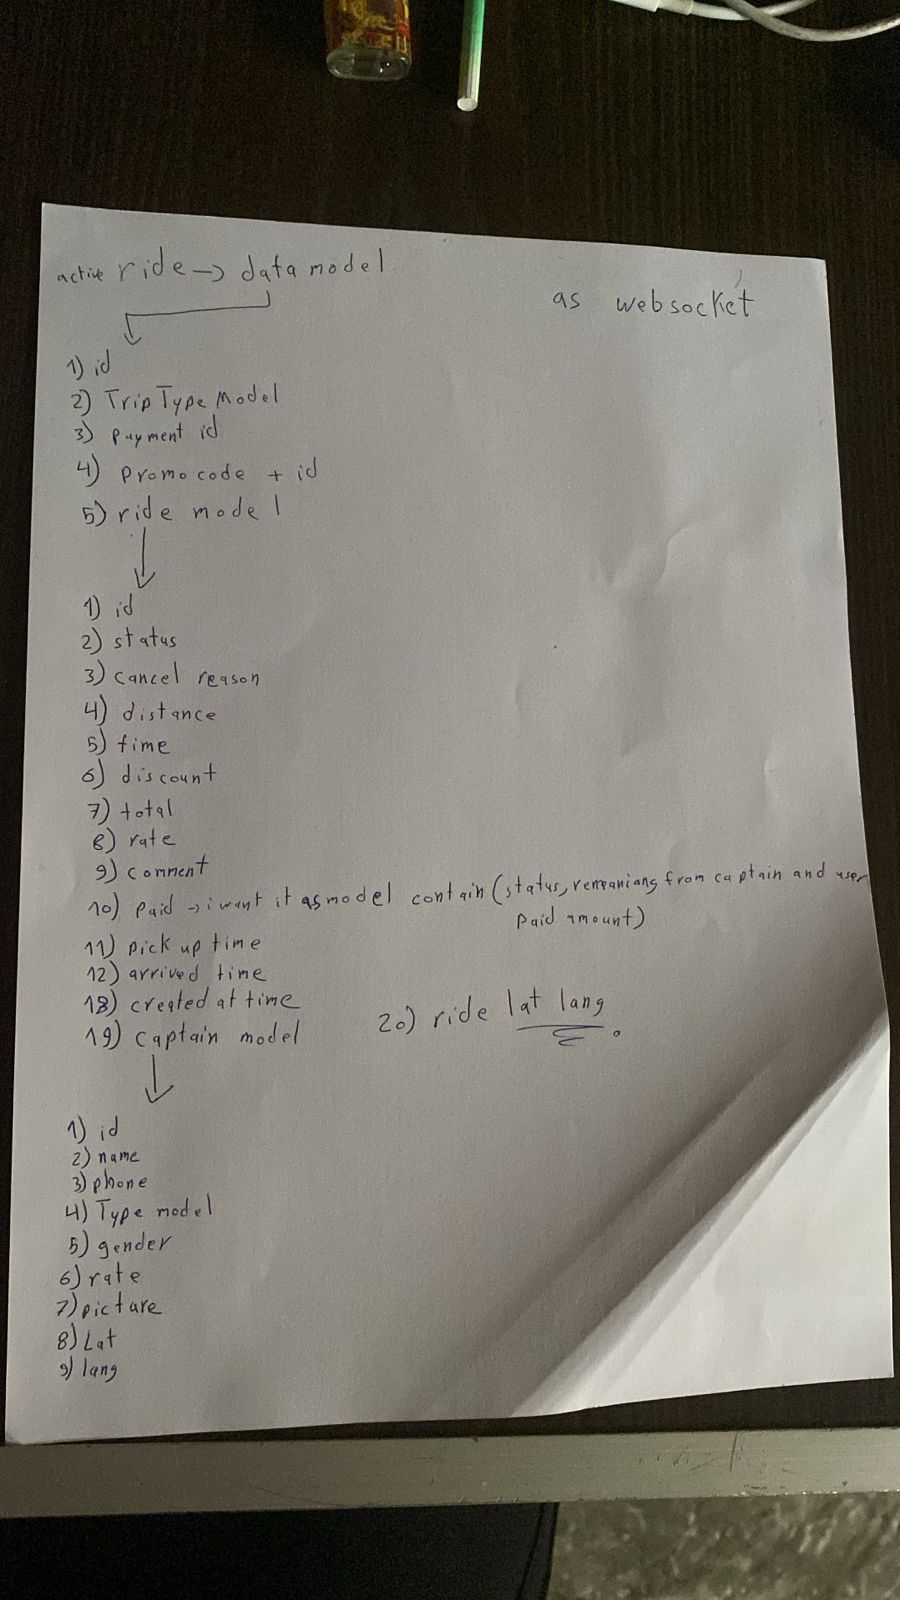 active ride → data model
as websocket
1) id
2) Trip Type Model
3) payment id
4) promo code + id
5) ride model
1) id
2) status
3) cancel reason
4) distance
5) time
6) discount
7) total
8) rate
9) comment
10) paid → i want it as model contain (status, remaniang from captain and user
paid amount)
11) pick up time
12) arrived time
18) created at time
19) captain model
20) ride lat lang.
1) id
2) name
3) phone
4) Type model
5) gender
6) rate
7) picture
8) Lat
9) lang